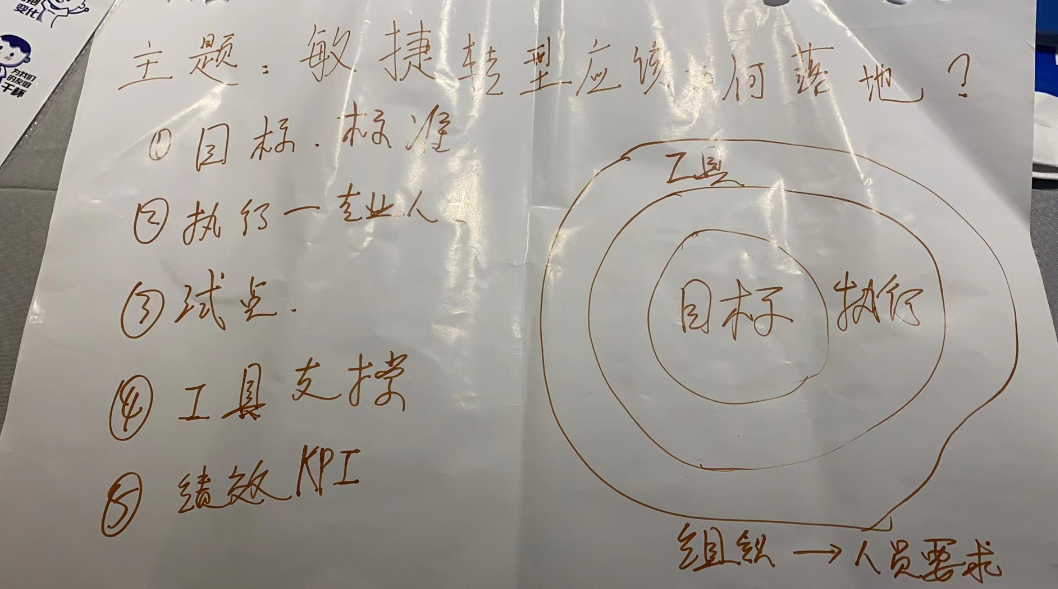 变化
为我们
的友谊
干杯
主题：敏捷转型应该如何落地？
① 目标.标准
② 执行一专业人.
③ 试点.
④ 工具支撑
⑤ 绩效KPI
工具
目标 执行
组织 → 人员要求